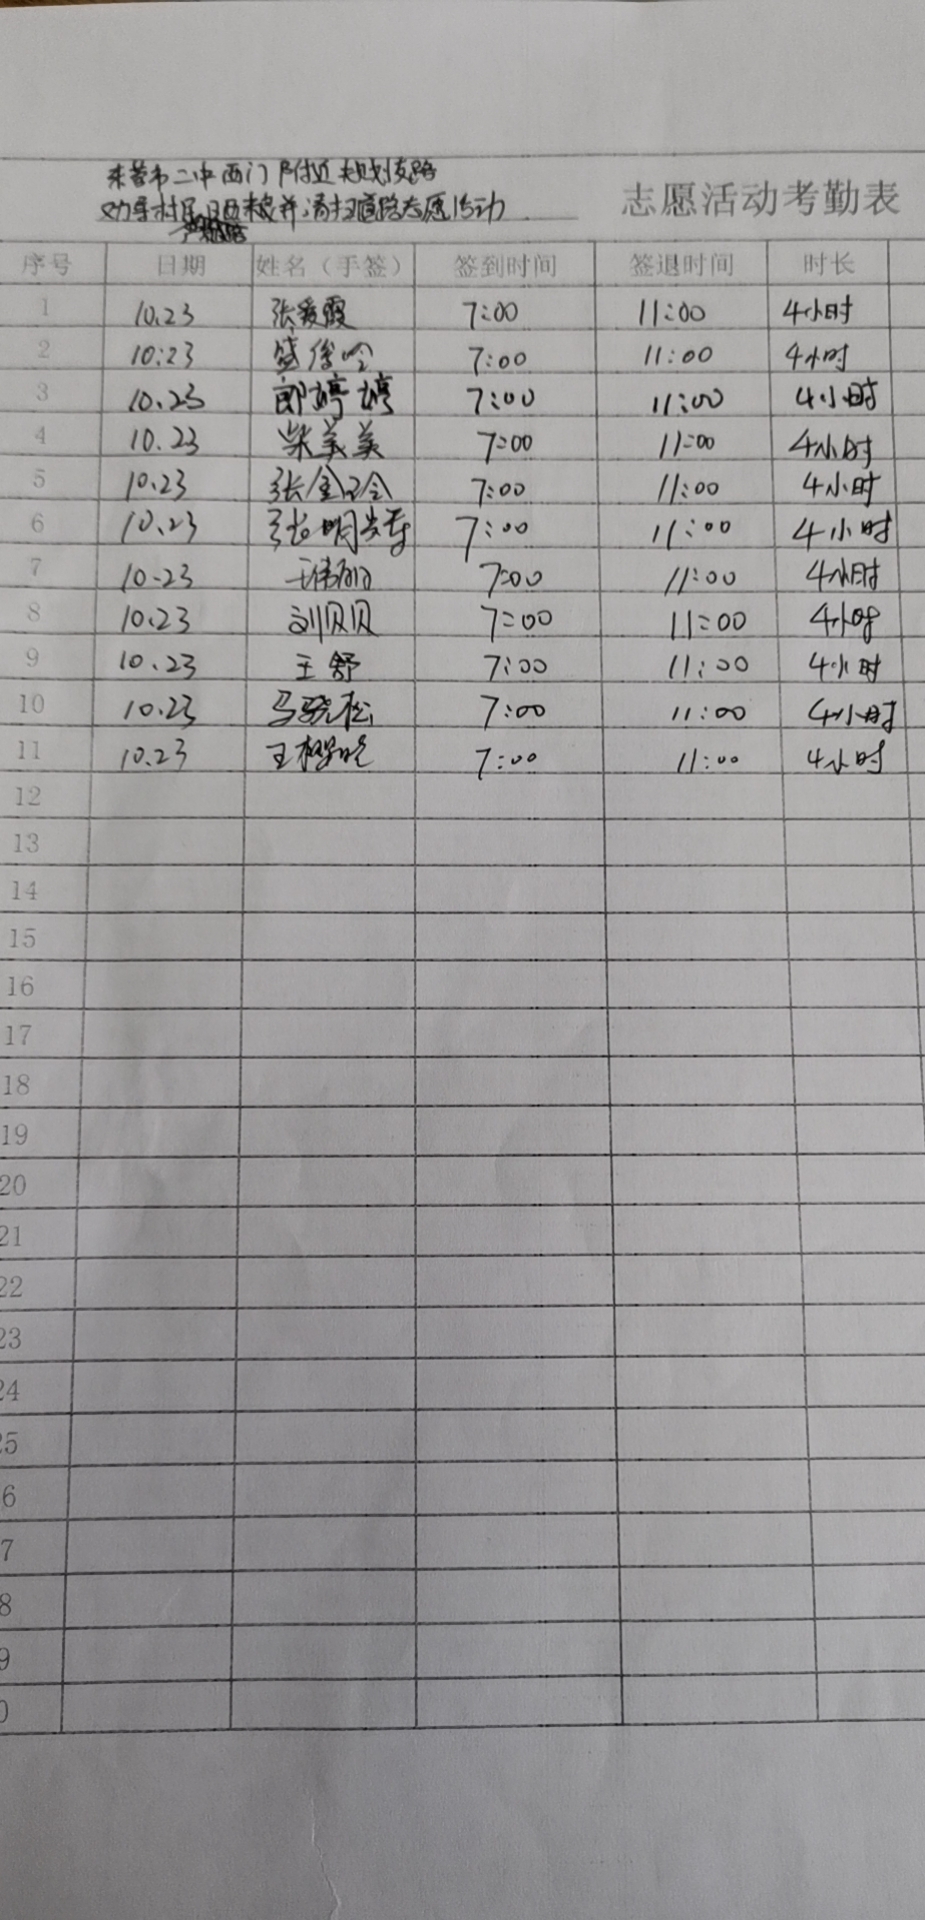 东营市二中西门附近规划支路
劝导村民晒粮并清扫道路志愿活动 志愿活动考勤表
序号 日期 姓名（手签） 签到时间 签退时间 时长
1 10.23 张爱霞 7:00 11:00 4小时
2 10.23 盛俊吟 7:00 11:00 4小时
3 10.23 郎婷婷 7:00 11:00 4小时
4 10.23 柴美美 7:00 11:00 4小时
5 10.23 张金玲 7:00 11:00 4小时
6 10.23 张明 7:00 11:00 4小时
7 10.23 7:00 11:00 4小时
8 10.23 刘贝贝 7:00 11:00 4小时
9 10.23 王舒 7:00 11:00 4小时
10 10.23 马骁松 7:00 11:00 4小时
11 10.23 王 7:00 11:00 4小时
12
13
14
15
16
17
18
19
20
21
22
23
24
25
6
7
8
9
0